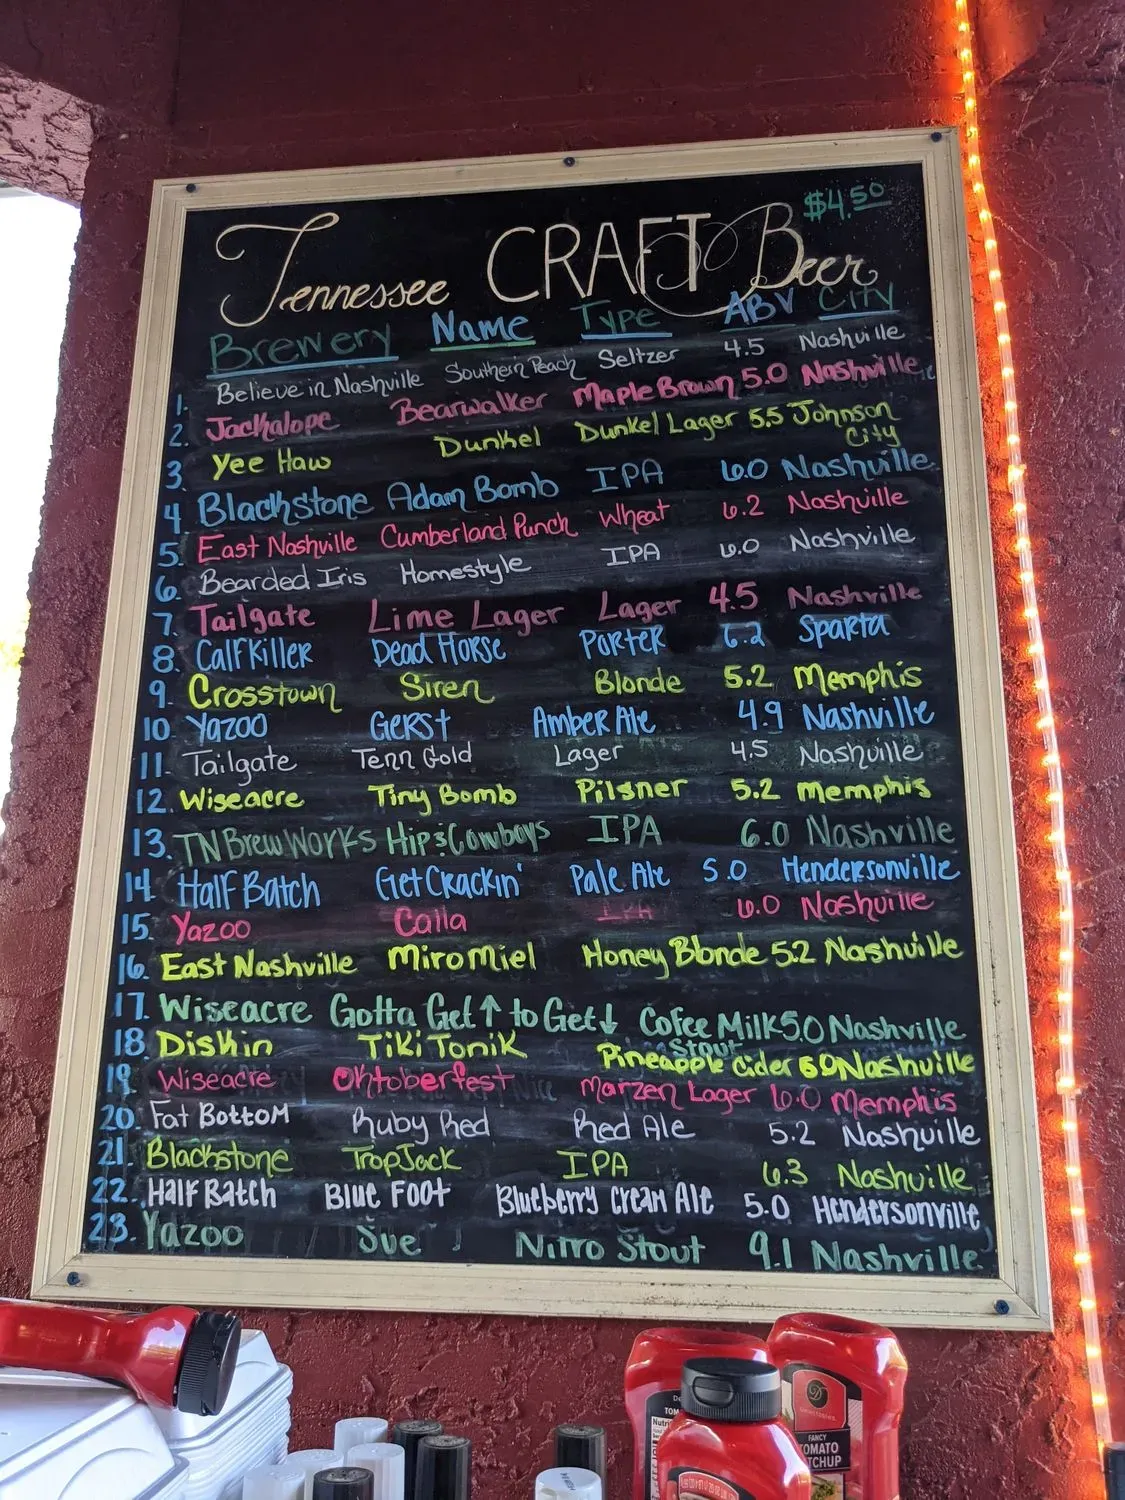 $4.50
Tennessee CRAFT Beer
Brewery Name Type ABV City
1. Believe in Nashville Southern Peach Seltzer 4.5 Nashville
2. Jackalope Bearwalker Maple Brown 5.0 Nashville
3. Yee Haw Dunkel Dunkel Lager 5.5 Johnson City
4. Blackstone Adam Bomb IPA 6.0 Nashville
5. East Nashville Cumberland Punch Wheat 6.2 Nashville
6. Bearded Iris Homestyle IPA 6.0 Nashville
7. Tailgate Lime Lager Lager 4.5 Nashville
8. Calfkiller Dead Horse Porter 6.2 Sparta
9. Crosstown Siren Blonde 5.2 Memphis
10. Yazoo Gerst Amber Ale 4.9 Nashville
11. Tailgate Tenn Gold Lager 4.5 Nashville
12. Wiseacre Tiny Bomb Pilsner 5.2 Memphis
13. TN Brew Works Hip & Cowboys IPA 6.0 Nashville
14. Half Batch Get Crackin' Pale Ale 5.0 Hendersonville
15. Yazoo Calla IPA 6.0 Nashville
16. East Nashville Miro Miel Honey Blonde 5.2 Nashville
17. Wiseacre Gotta Get ↑ to Get ↓ Cofee Milk Stout 5.0 Nashville
18. Diskin Tiki Tonik Pineapple Cider 6.0 Nashville
19. Wiseacre Oktoberfest Marzen Lager 6.0 Memphis
20. Fat Bottom Ruby Red Red Ale 5.2 Nashville
21. Blackstone TropJack IPA 6.3 Nashville
22. Half Batch Blue Foot Blueberry Cream Ale 5.0 Hendersonville
23. Yazoo Sue Nitro Stout 9.1 Nashville
FANCY
TOMATO